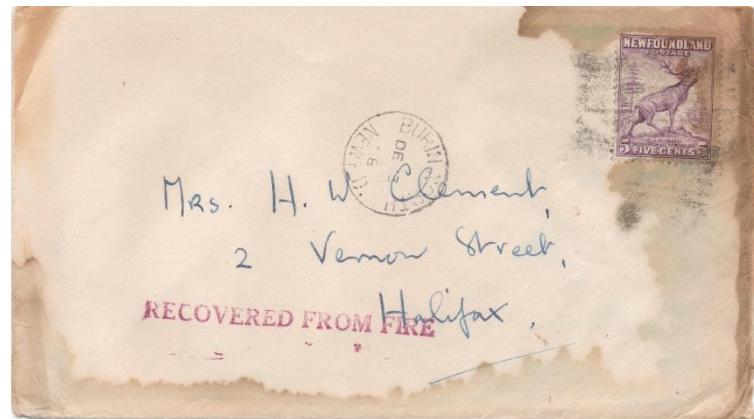 NEWFOUNDLAND
POSTAGE
5 FIVE CENTS 5
BURIN NORTH
DE
NEWF'D.
Mrs. H. W Clement,
2 Vernon Street,
Halifax,
RECOVERED FROM FIRE